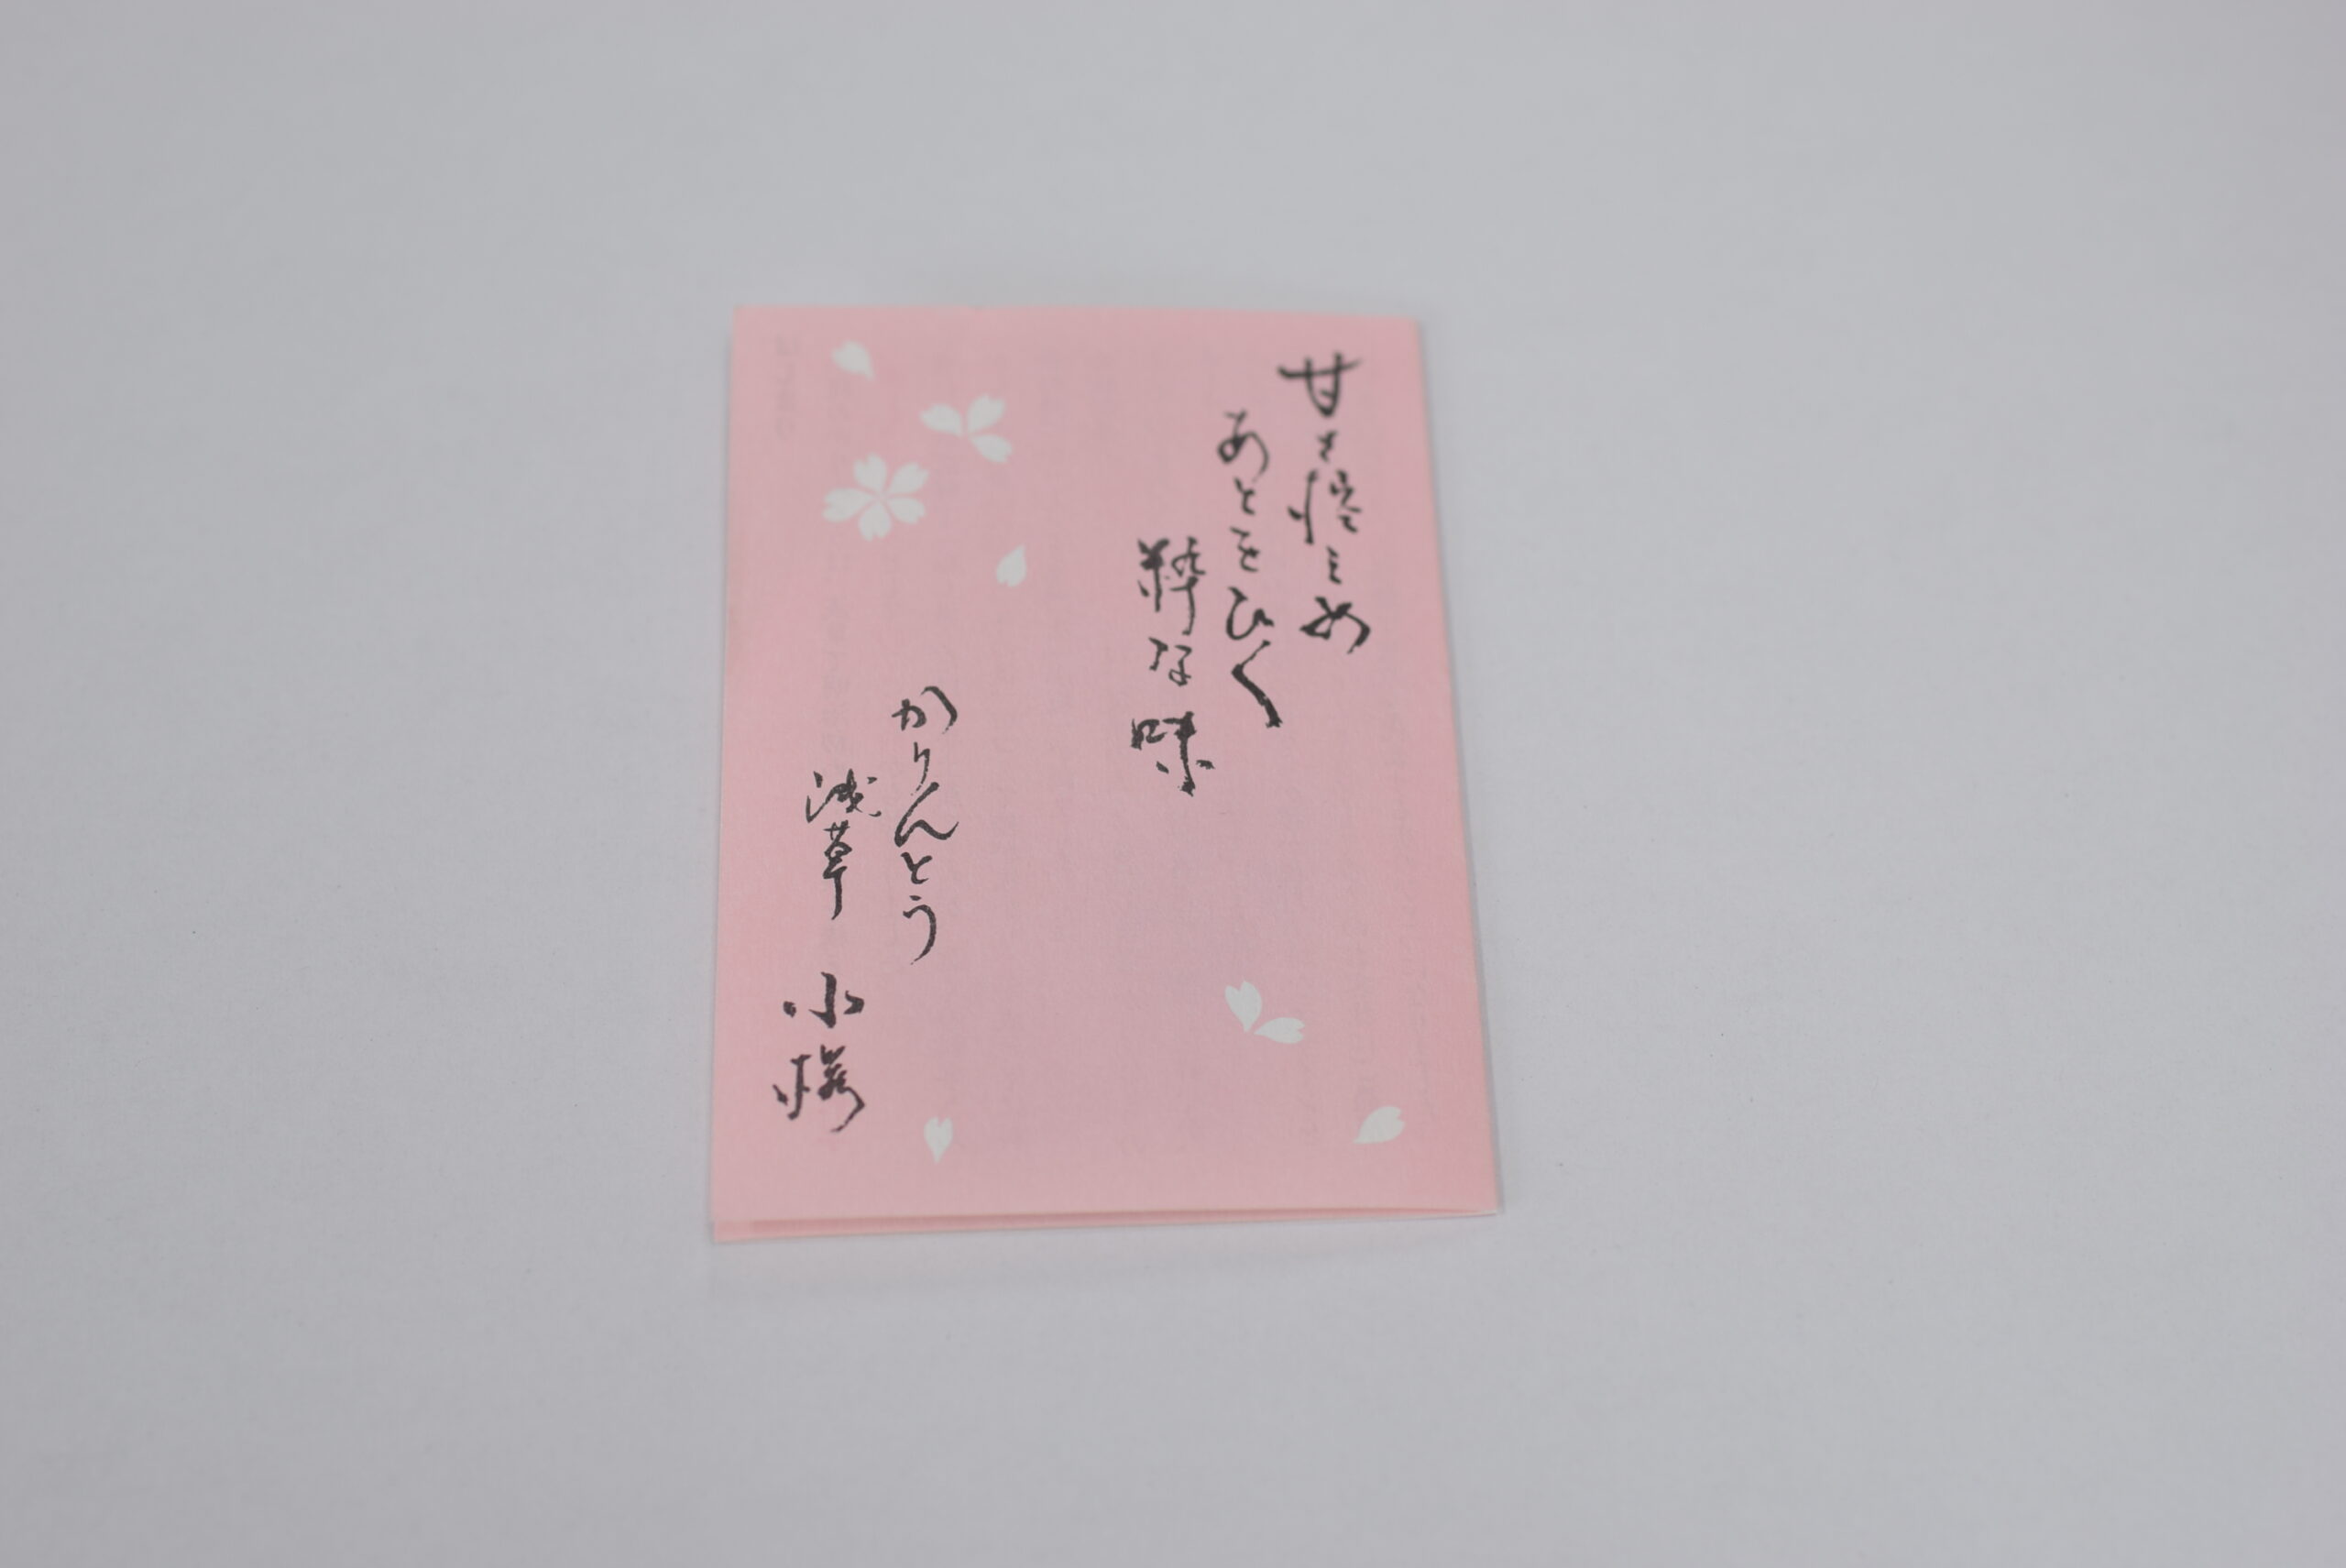 甘さ控えめ
あとをひく
粋な味
かりんとう
浅草 小桜